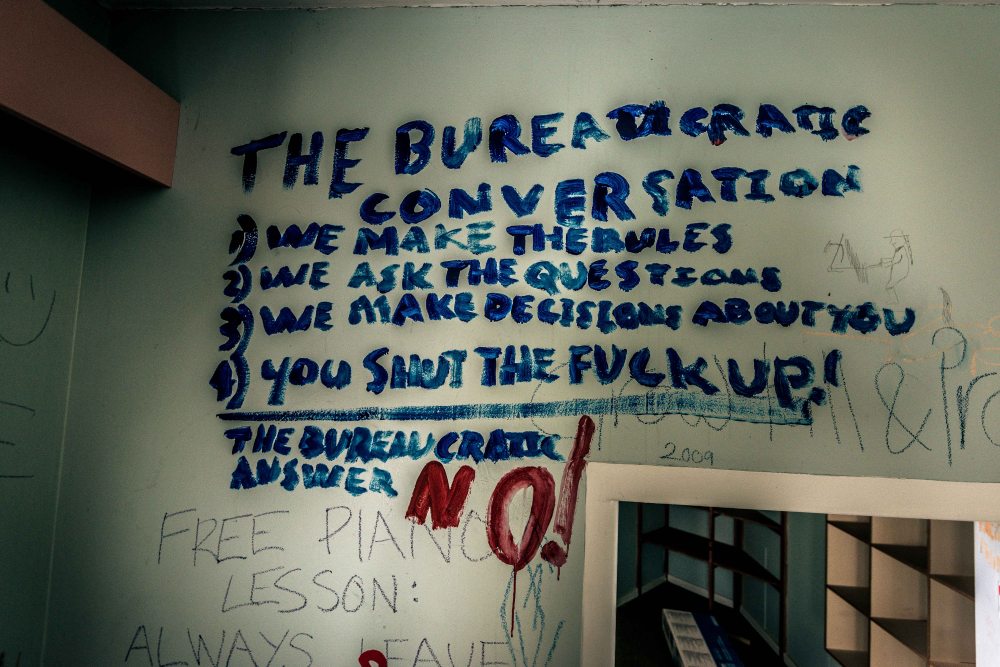 THE BUREAUCRATIC
CONVERSATION
1) WE MAKE THE RULES
2) WE ASK THE QUESTIONS
3) WE MAKE DECISIONS ABOUT YOU
4) YOU SHUT THE FUCK UP!
THE BUREAUCRATIC
ANSWER NO!
& Pro
2009
FREE PIANO
LESSON:
ALWAYS LEAVE